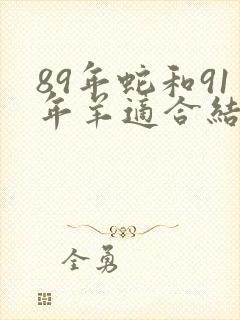 89年蛇和91
年羊適合結
全勇